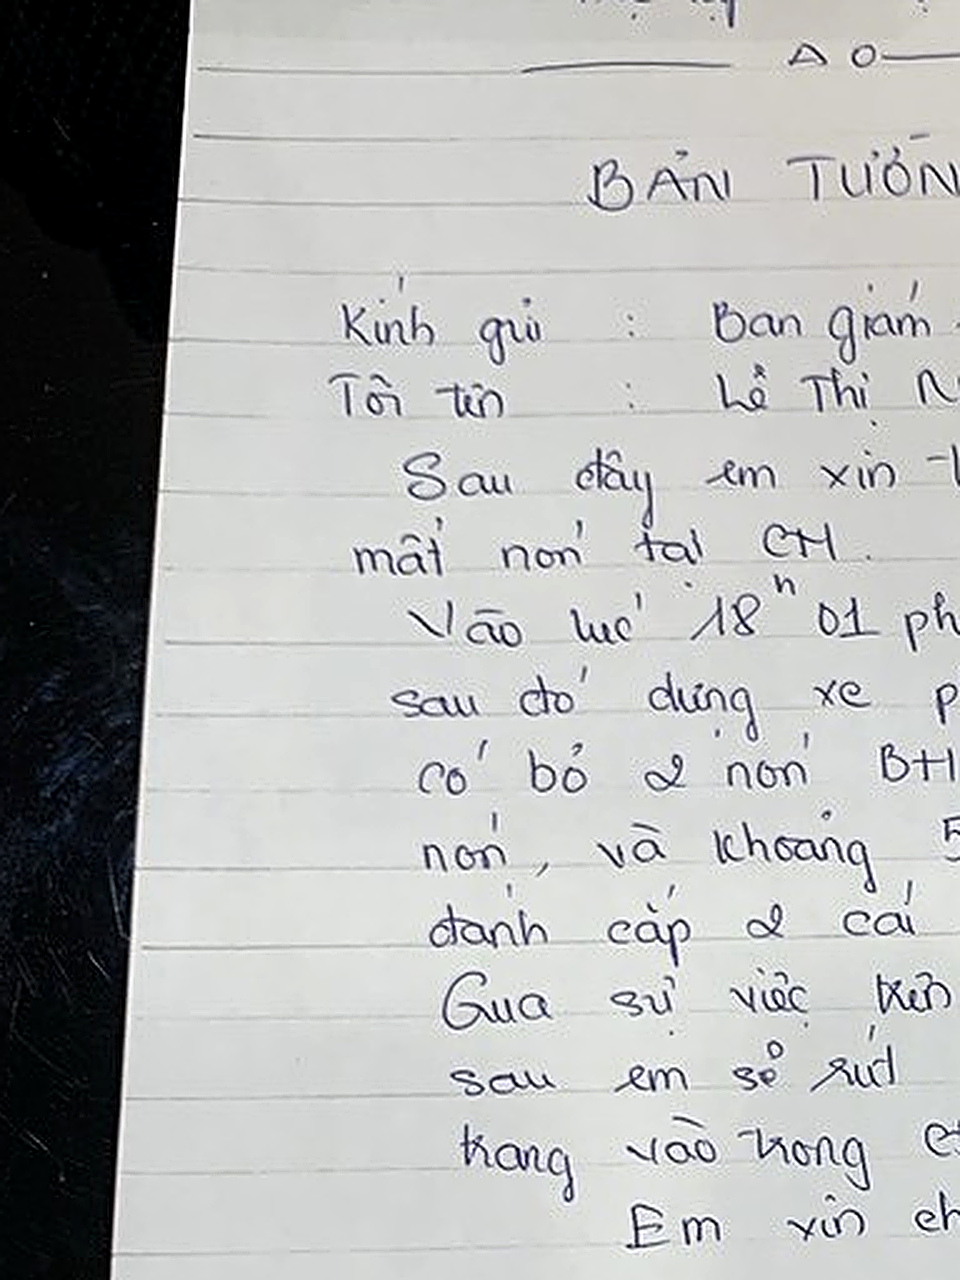 A O
BẢN TƯỜN
Kính gửi : Ban giám
Tôi tên : Lê Thị
Sau đây em xin
mất nón tại CH.
Vào lúc 18h 01 ph
sau đó dừng xe p
có bỏ 2 nón BH
nón, và khoảng 5
đánh cắp 2 cái
Qua sự việc trên
sau em sẽ rút
trang vào trong
Em xin ch